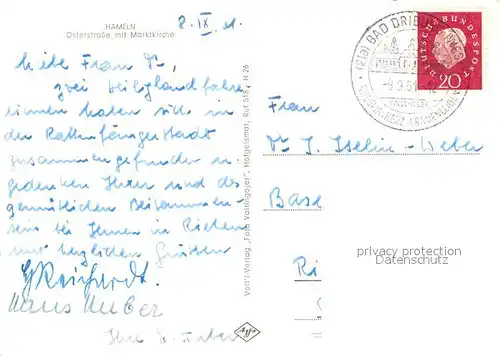 HAMELN
Osterstraße mit Marktkirche
8. IX 61.
Liebe Frau Dr.,
zwei Heiligland fahre-
rinnen haben sich in
der Rattenfängerstadt
zusammengefunden u.
gedenken Ihrer und des
gemütlichen Beisammen-
sein bei Ihnen in Riehen
mit herzlichen Grüssen
Hans Huber
Voltt-Verlag "Foto Hofgeismar, Ruf 518 H 26
BAD DRIBURG
-9.9.61
DEUTSCHE BUNDESPOST
20
Frau
Dr. I. Iselin-Weber
Base
Ri
privacy protection
Datenschutz